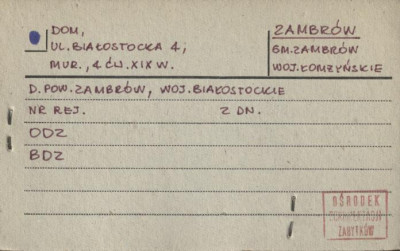 DOM,
UL. BIAŁOSTOCKA 4,
MUR., 4 ĆW. XIX W.
ZAMBRÓW
GM. ZAMBRÓW
WOJ. ŁOMŻYŃSKIE
D. POW. ZAMBRÓW, WOJ. BIAŁOSTOCKIE
NR REJ. Z DN.
ODZ
BDZ
OŚRODEK
DOKUMENTACJI
ZABYTKÓW